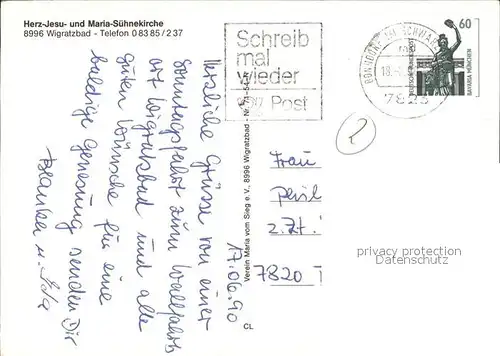 Herz-Jesu- und Maria-Sühnekirche
8996 Wigratzbad - Telefon 0 83 85 / 2 37
Schreib
mal
wieder
Post
60
DEUTSCHE BUNDESPOST
BAVARIA MÜNCHEN
BONNDORF IM SCHWARZW
18.-
7823
Verein Maria vom Sieg e.V., 8996 Wigratzbad - Nr.
CL
17.06.90
Herzliche Grüsse von einer
Sonntagsfahrt zum Wallfahrts
ort Wigratzbad und alle
guten Wünsche für eine
baldige Genesung senden Dir
u. Ida
2
Frau
z.Zt.
7820 T
privacy protection
Datenschutz